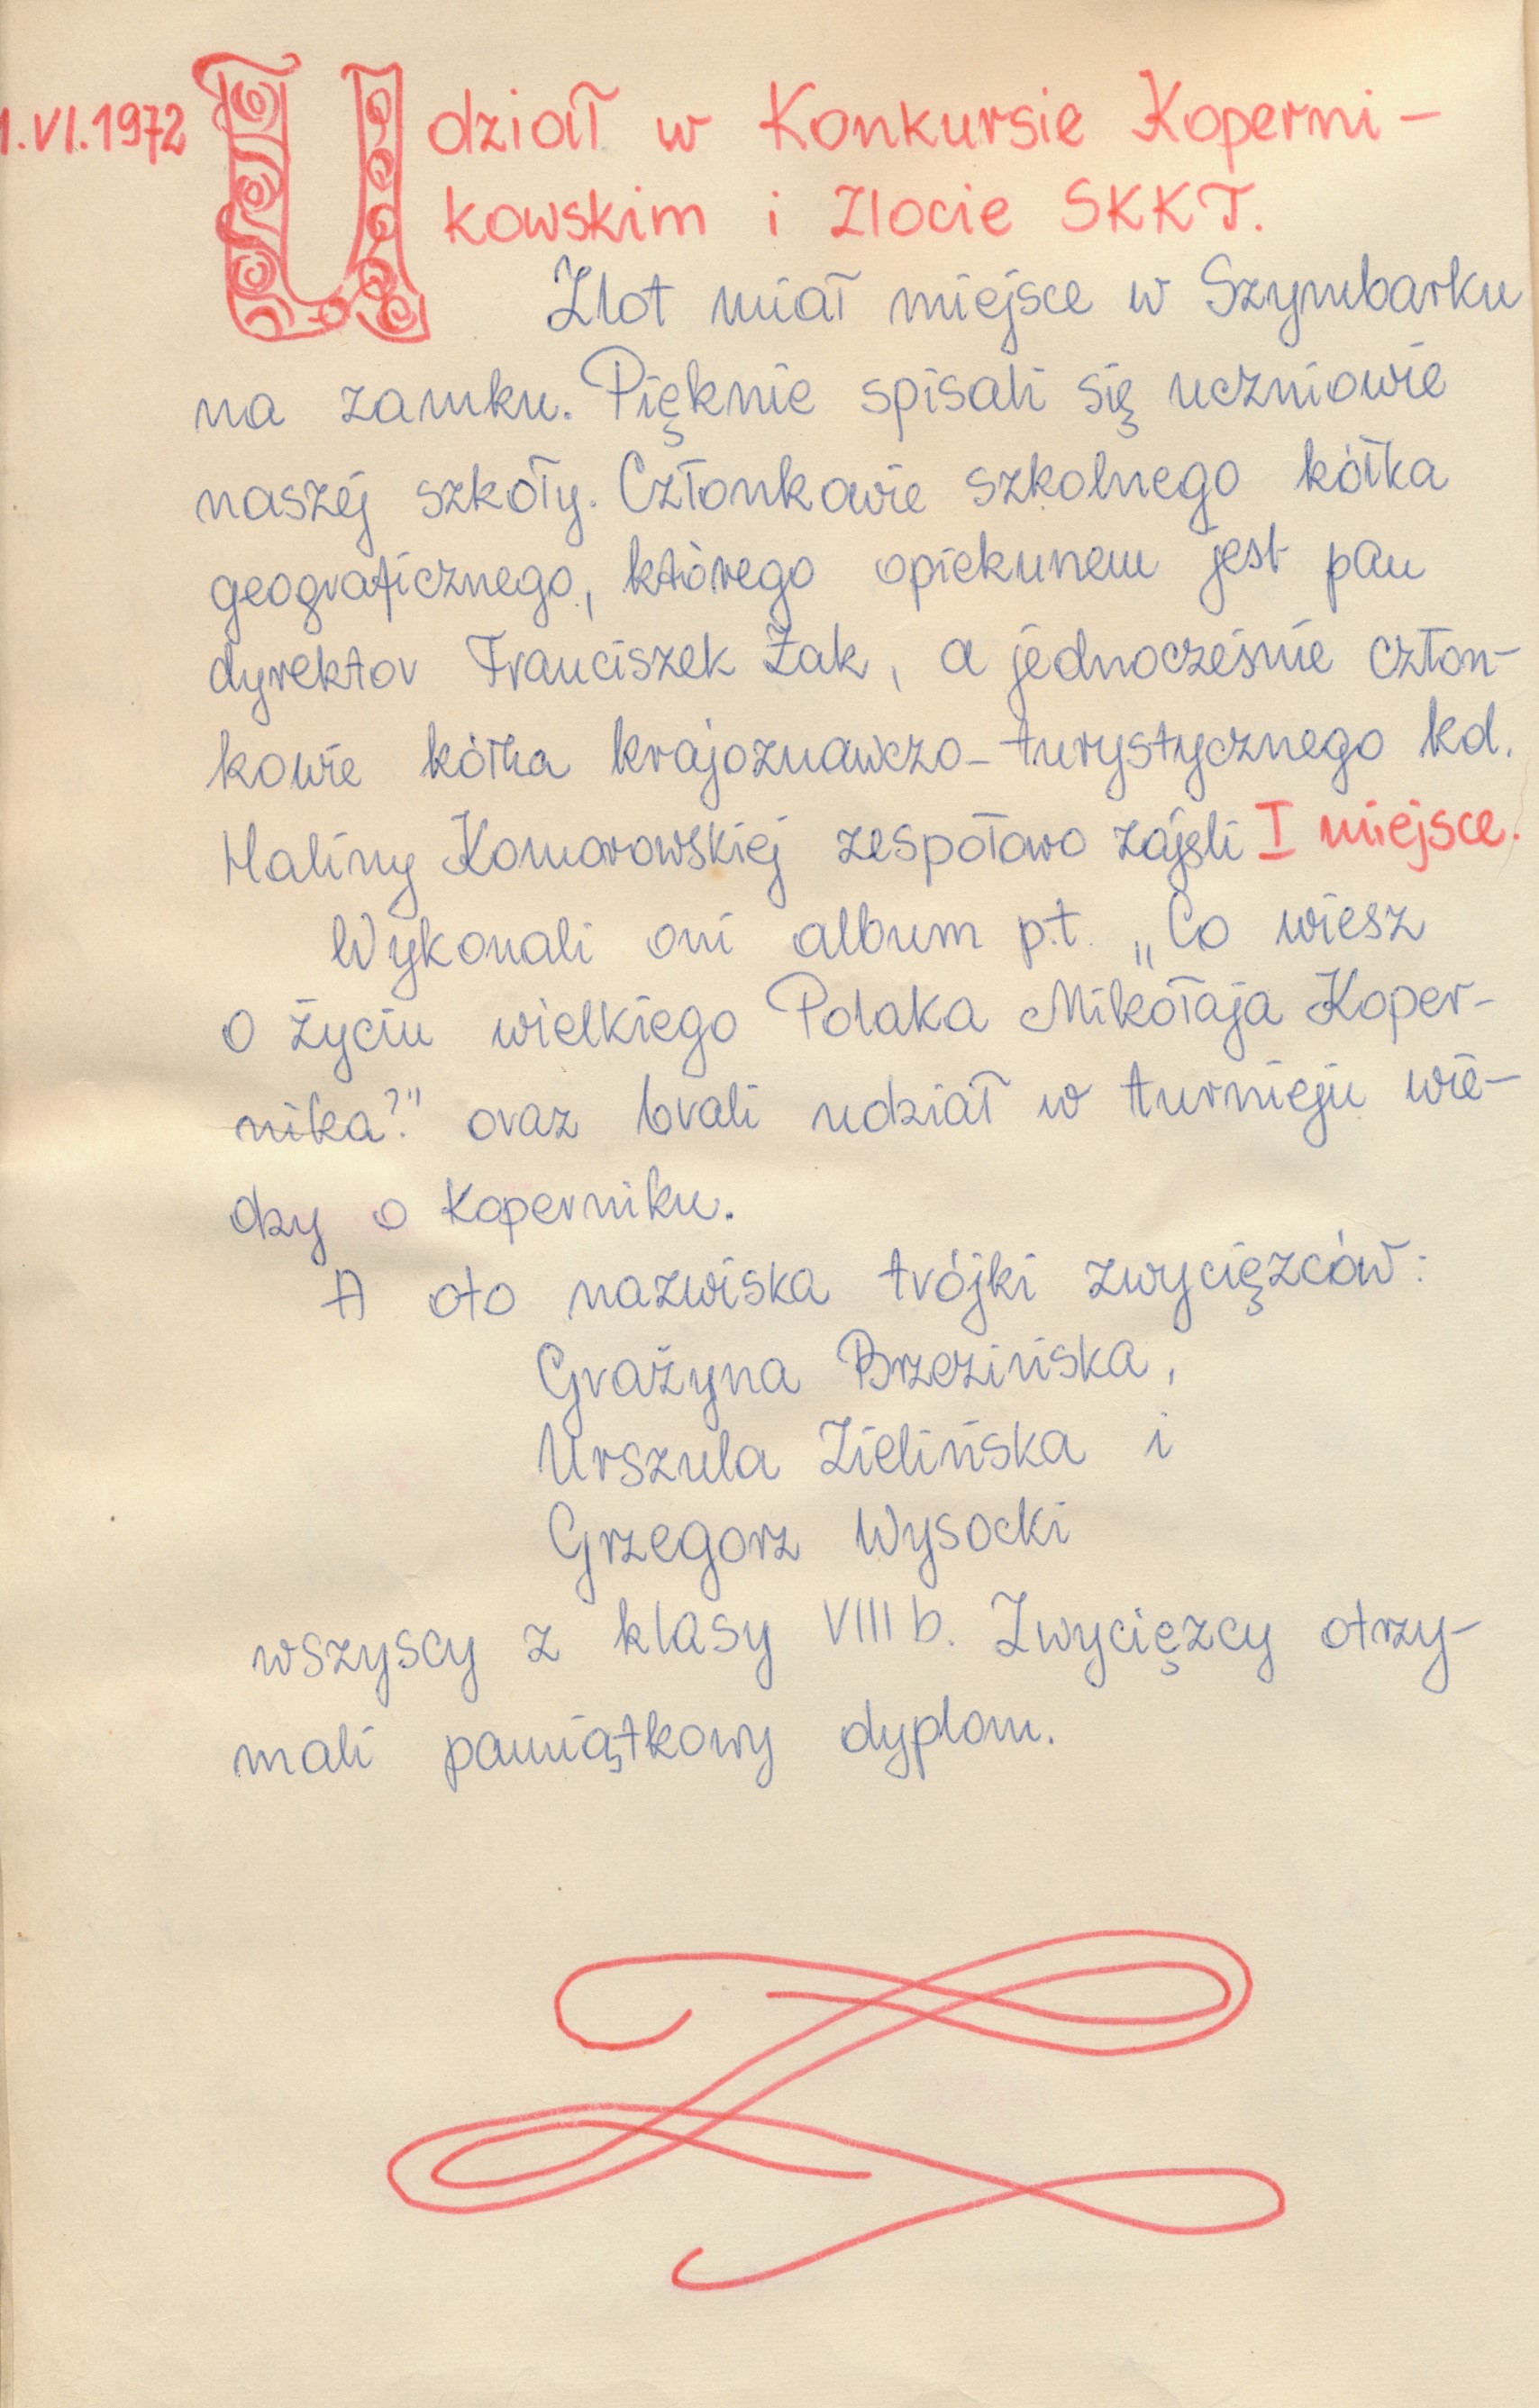 1.VI.1972 Udział w Konkursie Koperni-
kowskim i Zlocie SKKT.
Zlot miał miejsce w Szymbarku
na zamku. Pięknie spisali się uczniowie
naszej szkoły. Członkowie szkolnego kółka
geograficznego, którego opiekunem jest pan
dyrektor Franciszek Żak, a jednocześnie człon-
kowie kółka krajoznawczo-turystycznego kol.
Haliny Komorowskiej zespołowo zajęli I miejsce.
Wykonali oni album p.t. „Co wiesz
o życiu wielkiego Polaka Mikołaja Koper-
nika?" oraz brali udział w turnieju wie-
dzy o Koperniku.
A oto nazwiska trójki zwycięzców:
Grażyna Brzezińska,
Urszula Zielińska i
Grzegorz Wysocki
wszyscy z klasy VIII b. Zwycięzcy otrzy-
mali pamiątkowy dyplom.